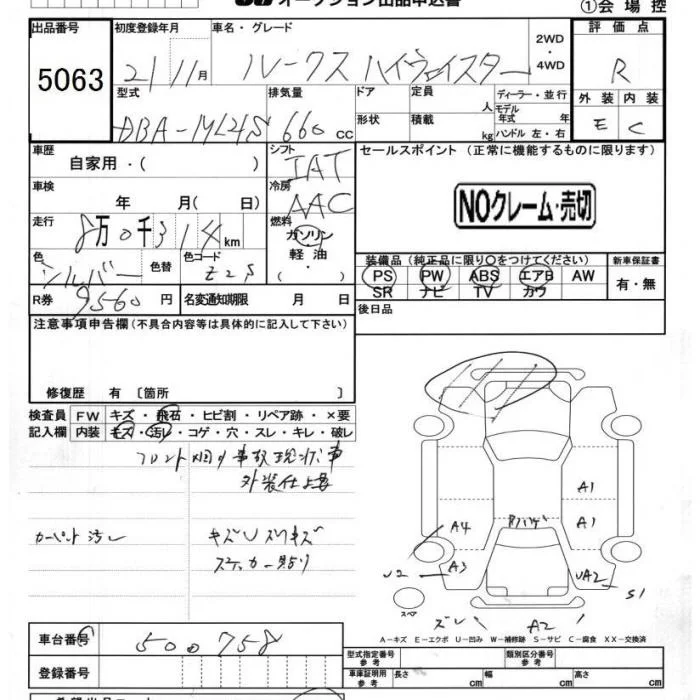 オークション出品申込書
①会場控
出品番号 初度登録年月 車名・グレード 評価点
5063 21 11月 ルークス ハイウェイスター 2WD・4WD R
型式 排気量 ドア 定員 人 ディーラー・並行 外装 内装
DBA-ML21S 660 CC 形状 積載 kg モデル年式 年 ハンドル 左・右 E C
車歴 シフト セールスポイント (正常に機能するものに限ります)
自家用・( ) IAT
車検 冷房
年 月( 日) AAC NOクレーム・売切
走行 燃料
8万0千314km ガソリン
色 色替 色コード 軽油 装備品(純正品に限り○をつけてください) 新車保証書
シルバー Z2S ・( ) PS PW ABS エアB AW 有・無
SR ナビ TV カワ
R券 9560円 名変通知期限 月 日
後日品
注意事項申告欄(不具合内容等は具体的に記入して下さい)
修復歴 有 〔箇所 〕
検査員 FW キズ・飛石・ヒビ割・リペア跡・×要
記入欄 内装 キズ・汚レ・コゲ・穴・スレ・キレ・破レ
フロント廻り事故現状車
外装仕上要
カーペント汚レ キズUスリキズ
ステッカー貼り
A1
A1
A4
A3
U2
UA2
S1
スペア
ズレ
A2
A-キズ E-エクボ U-凹み W-補修跡 S-サビ C-腐食 XX-交換済
車台番号 500758
型式指定番号 参考 類別区分番号 参考
登録番号 車庫証明用 参考 長さ cm 幅 cm 高さ cm